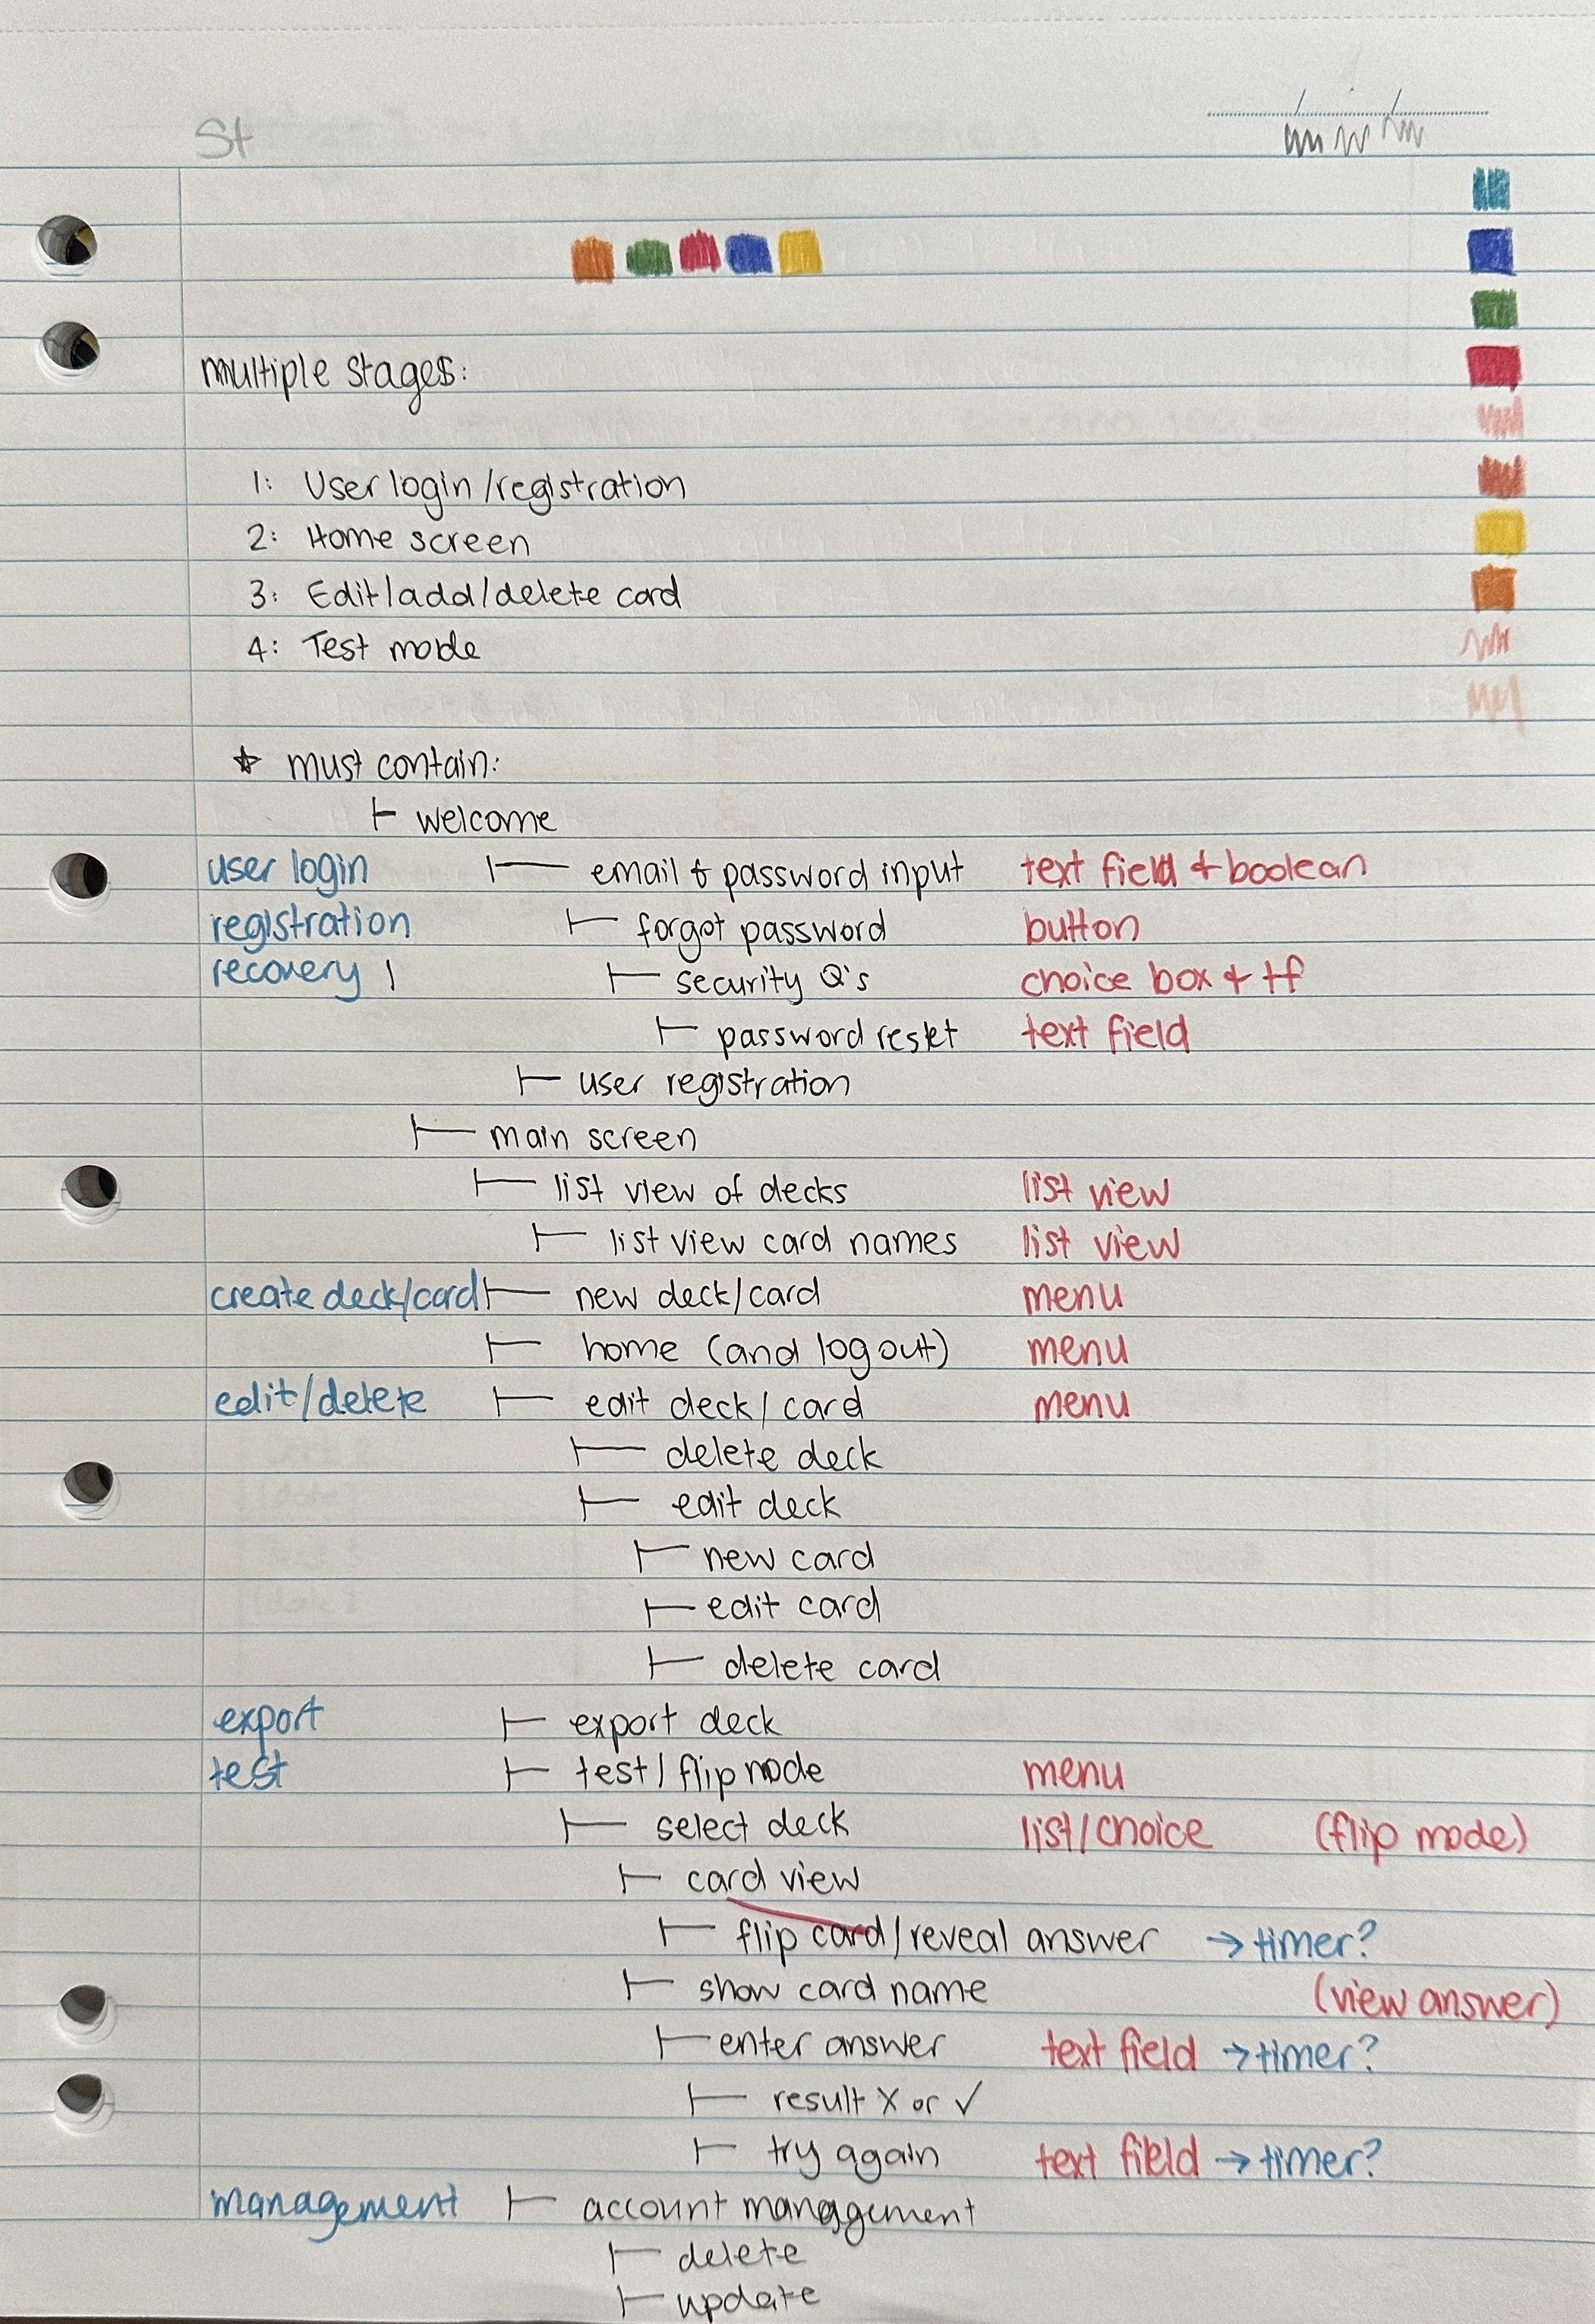 St
multiple stages:
1: User login/registration
2: Home screen
3: Edit/add/delete card
4: Test mode
★ must contain:
⊢ welcome
user login ⊢ email & password input text field & boolean
registration ⊢ forgot password button
recovery ⊢ security Q's choice box & tf
⊢ password reset text field
⊢ user registration
⊢ main screen
⊢ list view of decks list view
⊢ list view card names list view
create deck/card ⊢ new deck/card menu
⊢ home (and log out) menu
edit/delete ⊢ edit deck/card menu
⊢ delete deck
⊢ edit deck
⊢ new card
⊢ edit card
⊢ delete card
export ⊢ export deck
test ⊢ test/flip mode menu
⊢ select deck list/choice (flip mode)
⊢ card view
⊢ flip card/reveal answer → timer?
⊢ show card name (view answer)
⊢ enter answer text field → timer?
⊢ result X or ✓
⊢ try again text field → timer?
management ⊢ account management
⊢ delete
⊢ update